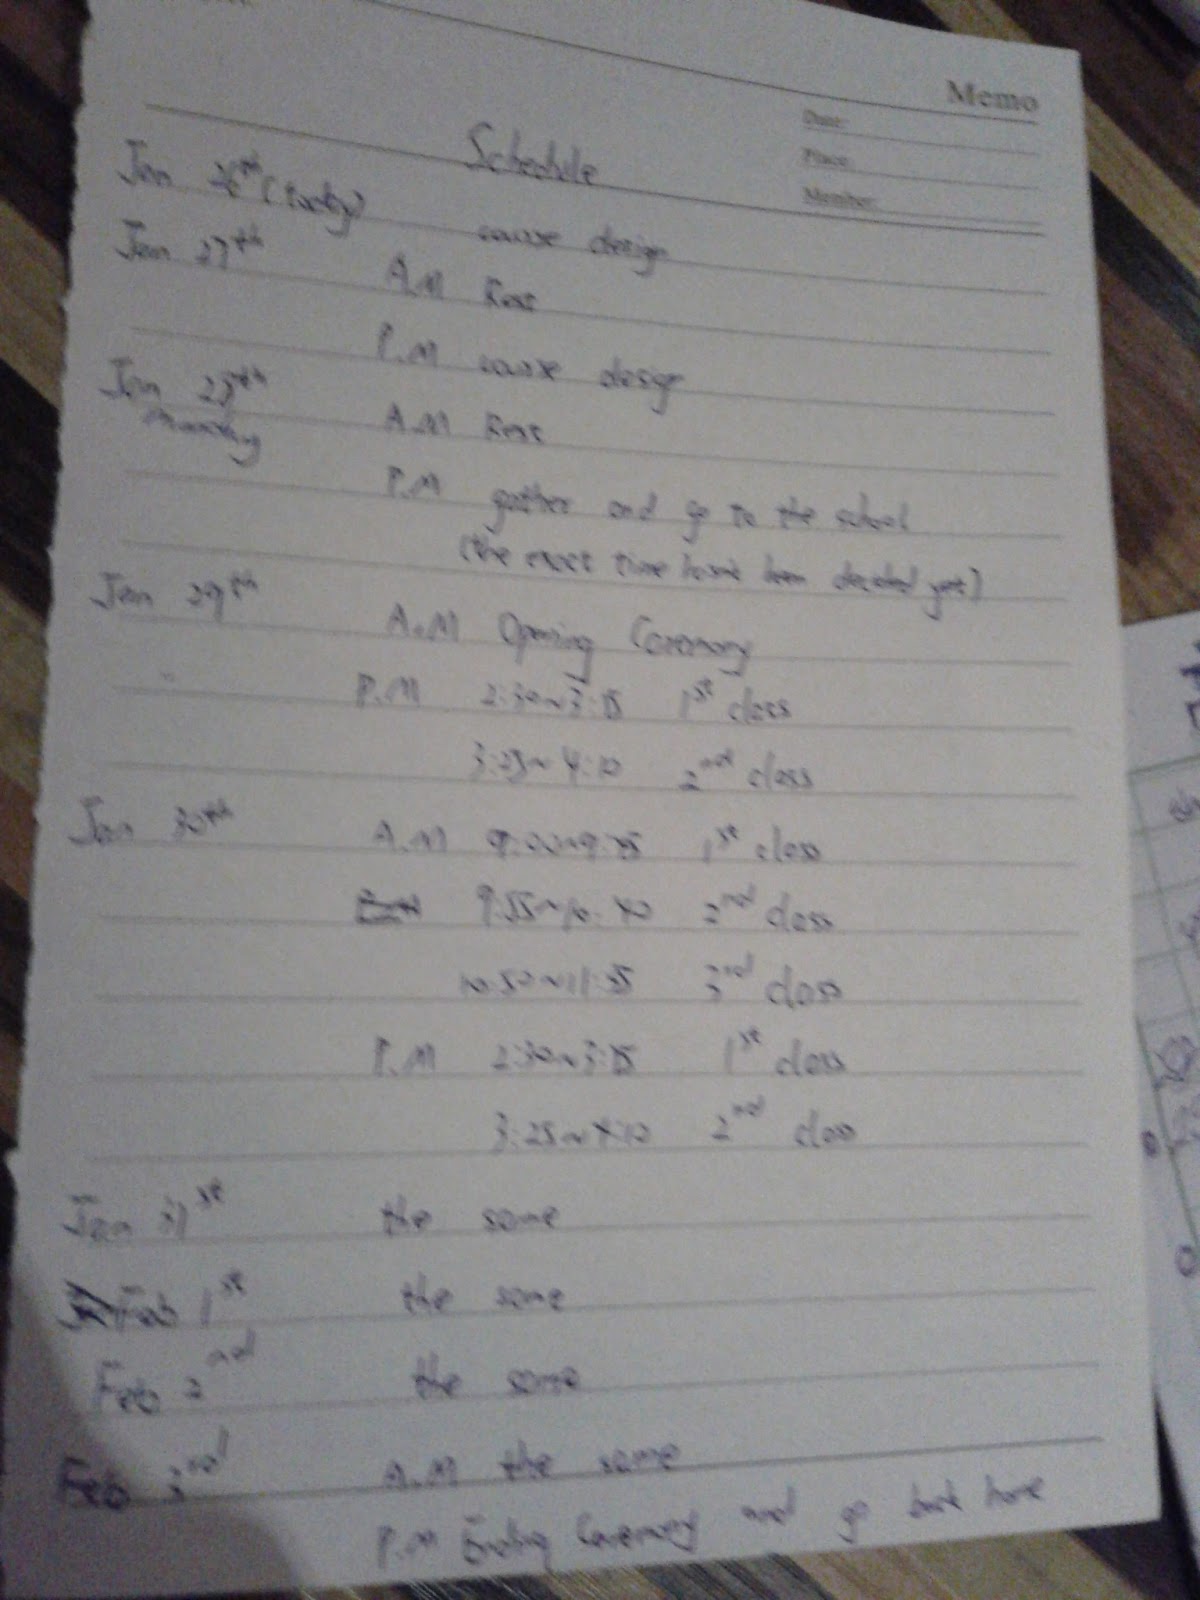 Memo
Date:
Place:
Member:
Schedule
Jan 26th (today) course design
Jan 27th A.M Rest
P.M course design
Jan 28th A.M Rest
Monday
P.M gather and go to the school
(the exact time hasn't been decided yet)
Jan 29th A.M Opening Ceremony
P.M 2:30~3:15 1st class
3:25~4:10 2nd class
Jan 30th A.M 9:00~9:45 1st class
9:55~10:40 2nd class
10:50~11:35 3rd class
P.M 2:30~3:15 1st class
3:25~4:10 2nd class
Jan 31st the same
Feb 1st the same
Feb 2nd the same
Feb 3rd A.M the same
P.M Ending Ceremony and go back here